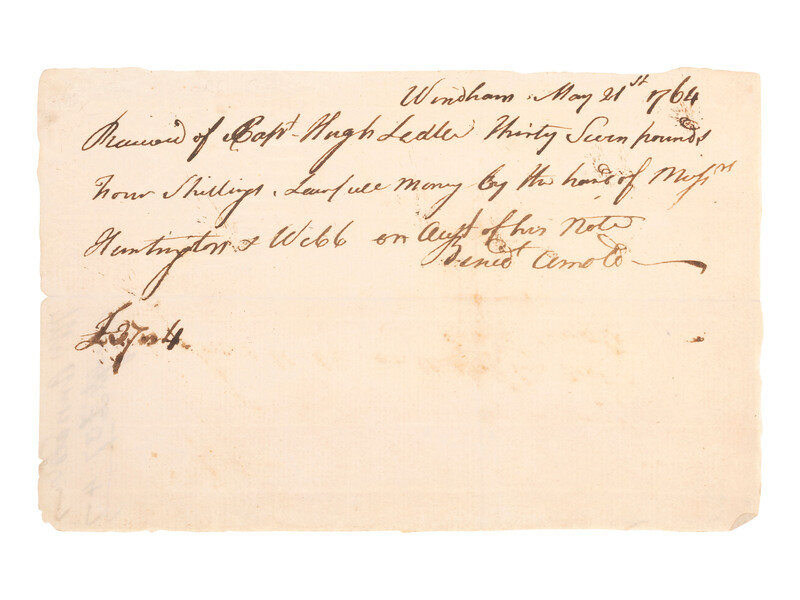 Windham May 21st 1764
Received of Capt. Hugh Ledlie Thirty Seven pounds
four Shillings Lawfull Money by the hand of Messrs
Huntington & Webb on Acct of his Note
Bened.t Arnold
£37..4